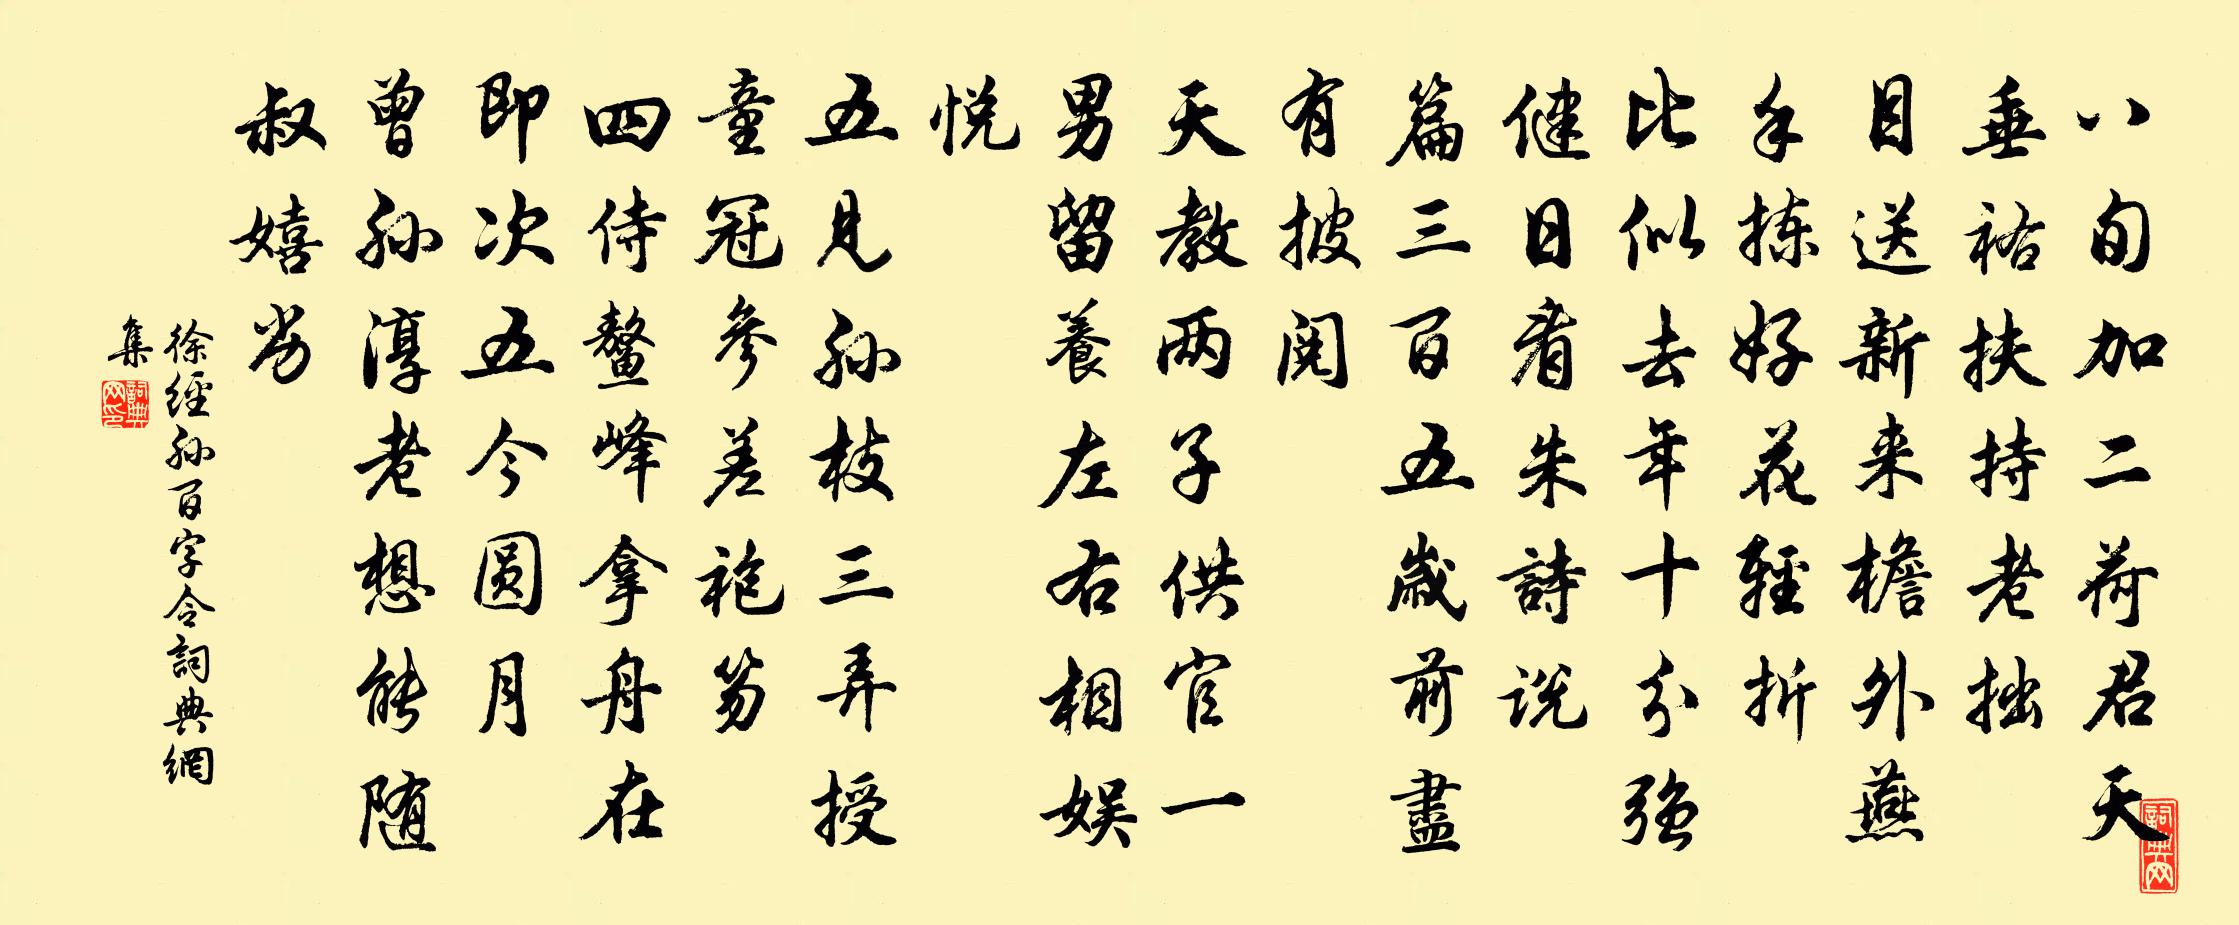 八旬加二荷君天
垂祐扶持老拙
目送新来檐外燕
手拣好花轻折
比似去年十分强
健日看朱詩说
篇三百五歲前盡
有披阅
天教两子供官一
男留養左右相娱
悦
五見孙枝三弄授
童冠參差袍笏
四侍鳌峰拿舟在
即次五今圆月
曾孙淳老想能随
叔嬉劣
徐經孙百字令詞典網
集
詞典网印
詞典网